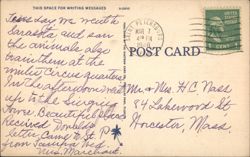 THIS SPACE FOR WRITING MESSAGES
Tuesday we went to
Sarasota and saw
the animals also
train them at the
winter Circus quarters
In the afternoon went
up to the Singing
Tower. Beautiful place
Received Donald's
letter. Came to St. P.
from Tampa Wed.
Mrs. Marchant
POST CARD
Mr & Mrs H C Nass
84 Lakewood St
Worcester, Mass.